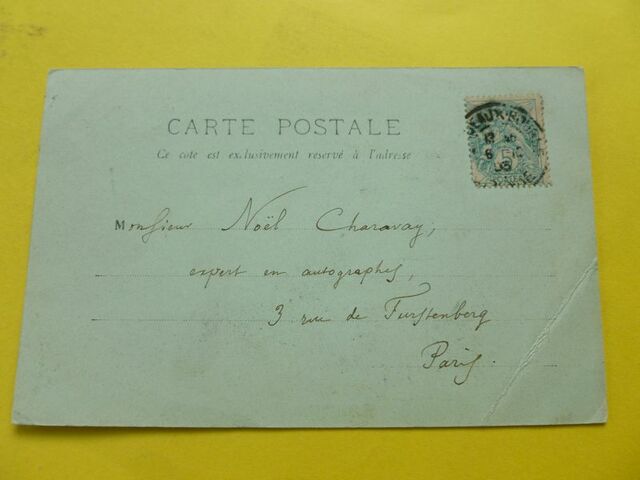 CARTE POSTALE
Ce côté est exclusivement réservé à l'adresse
Monsieur Noël Charavay,
expert en autographes,
3 rue de Furstenberg
Paris.